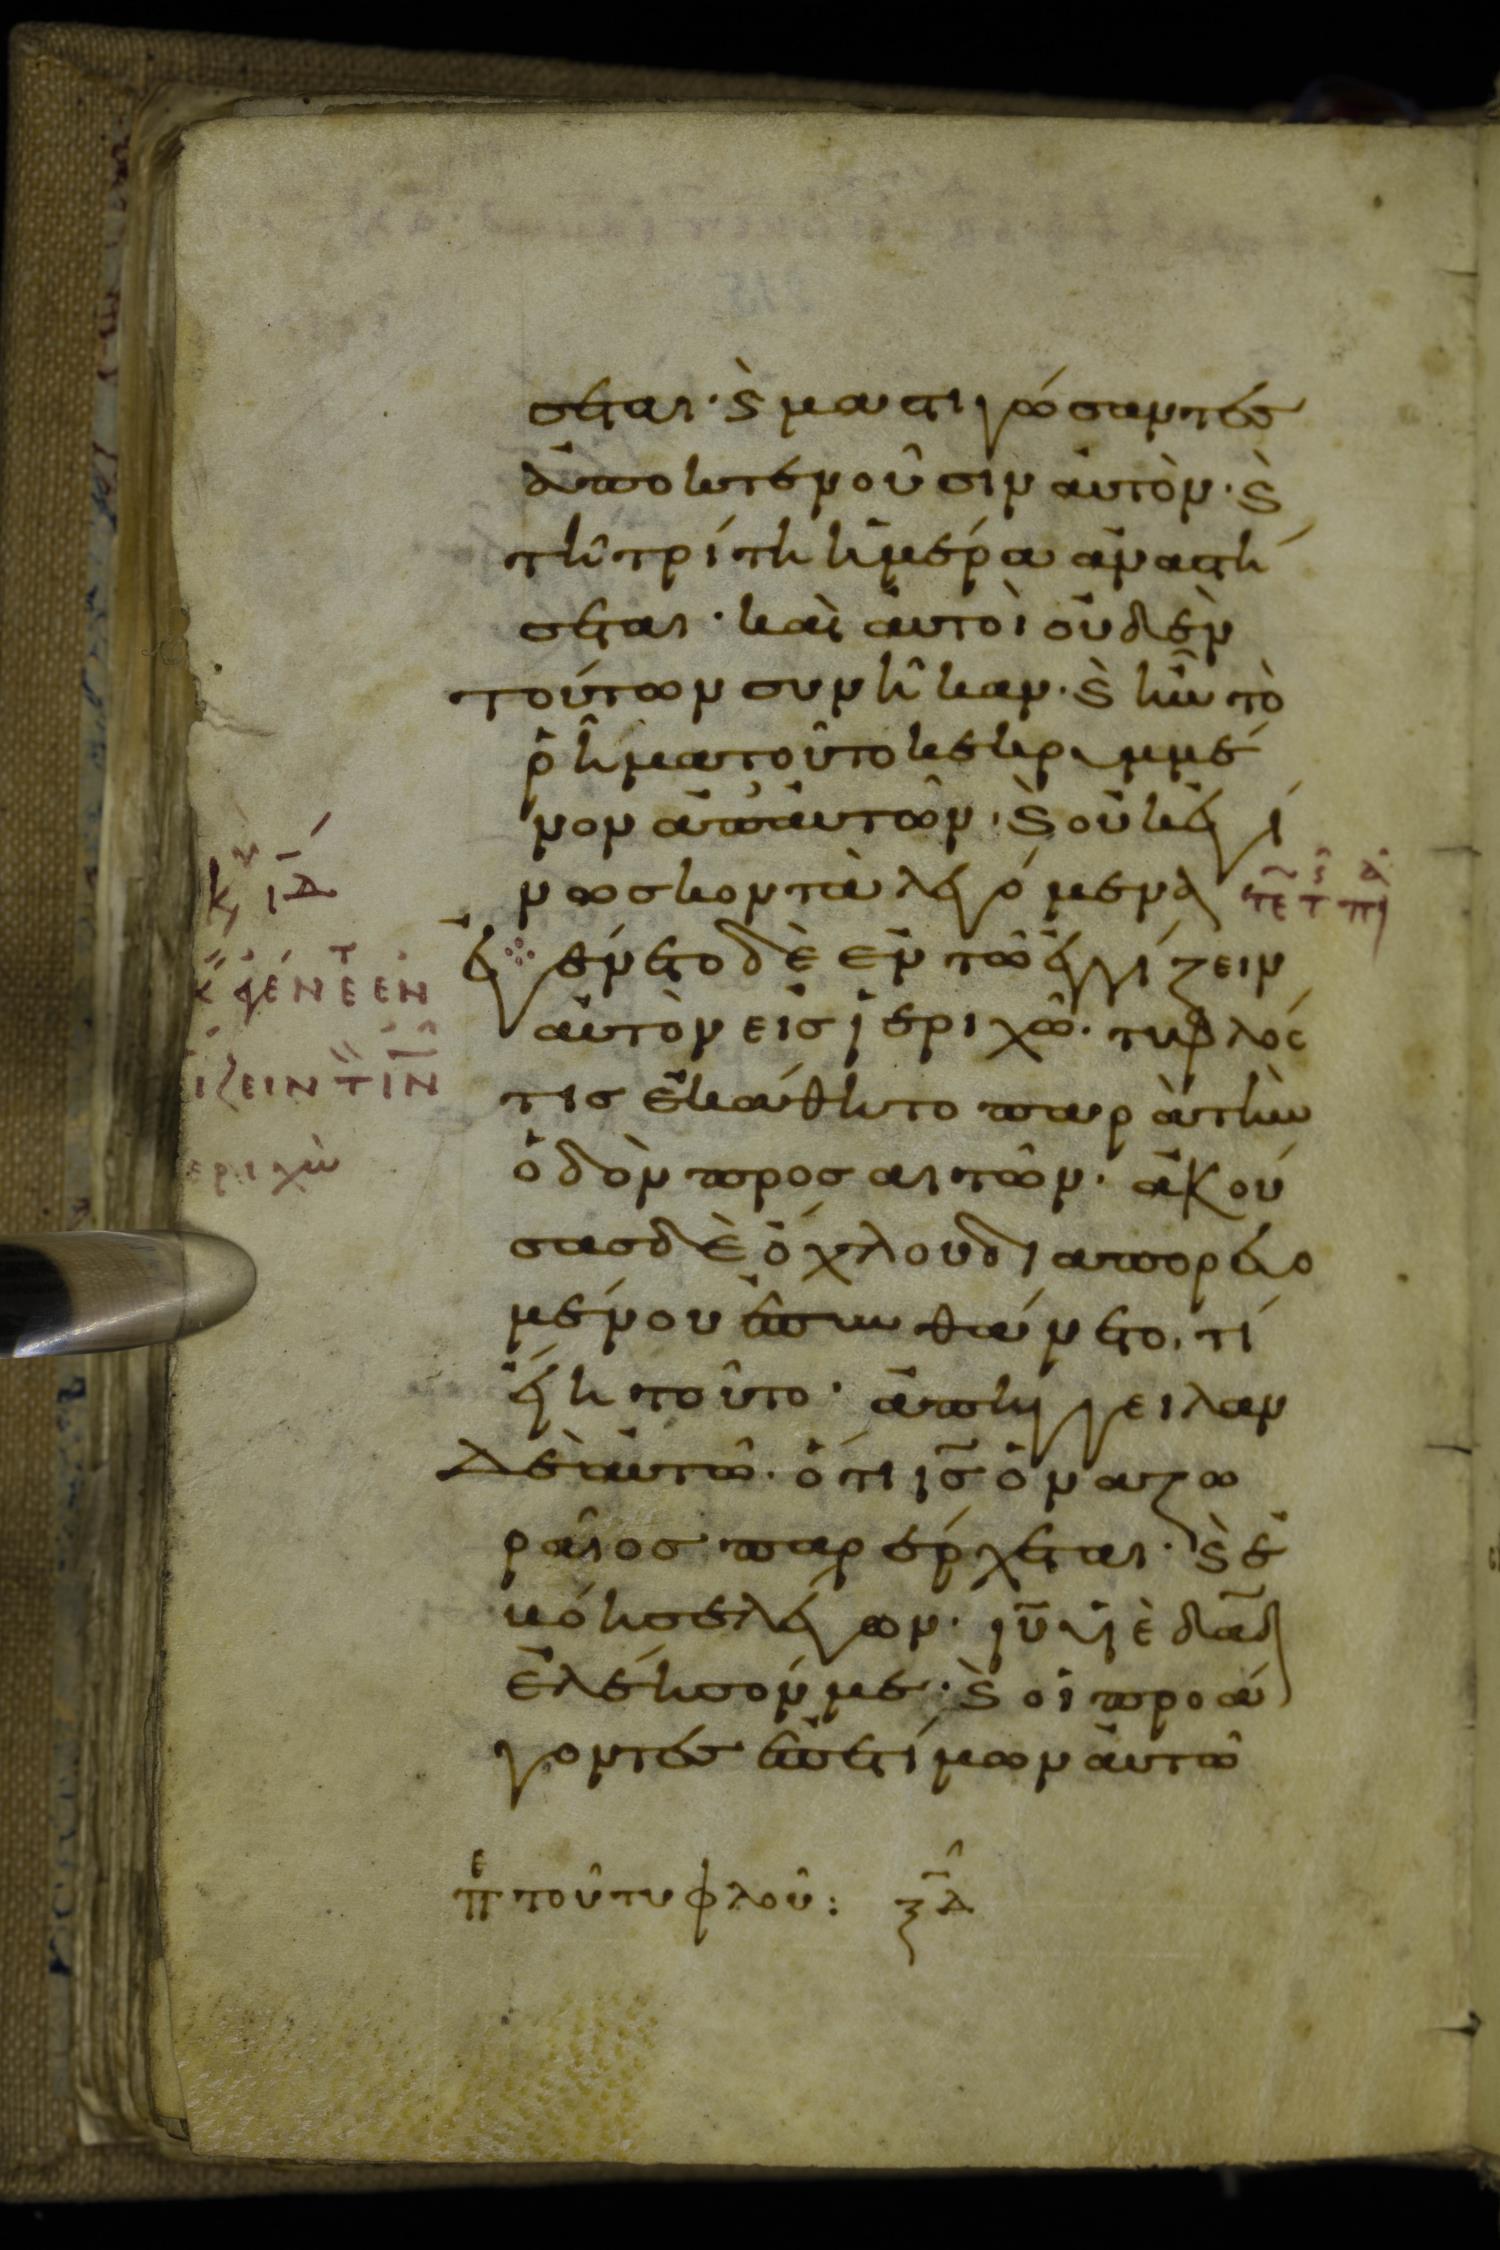 σεται· ϗ μαστιγώσαντες
ἀποκτενοῦσιν αὐτὸν· ϗ
τῆ τρίτη ἡμέρα ἀναστή
σεται· καὶ αὐτοὶ οὐδὲν
τούτων συνῆκαν· ϗ ἦν τὸ
ῥῆμα τοῦτο κεκρυμμέ
νον ἀπ' αὐτῶν· ϗ οὐκ ἐγί
νωσκον τὰ λεγόμενα
ἐγένετο δὲ ἐν τῶ ἐγγίζειν
αὐτὸν εἰς ἱεριχῶ· τυφλός
τις ἐκάθητο παρὰ τὴν
ὁδὸν προσαιτῶν· ἀκού
σας δὲ ὄχλου διαπορευο
μένου ἐπυνθάνετο· τί
εἴη τοῦτο· ἀπήγγειλαν
δὲ αὐτῶ· ὅτι ις ὁ ναζω
ραῖος παρέρχεται· ϗ ἐ
βόησε λέγων· ιυ υἱὲ δαδ
ἐλέησόν με· ϗ οἱ προά
γοντες ἐπετίμων αὐτῶ
τε τ
κυ ιδ
ΕΝ
ιζειν τ ιν
εριχὼ
πε τοῦ τυφλοῦ: ξδ